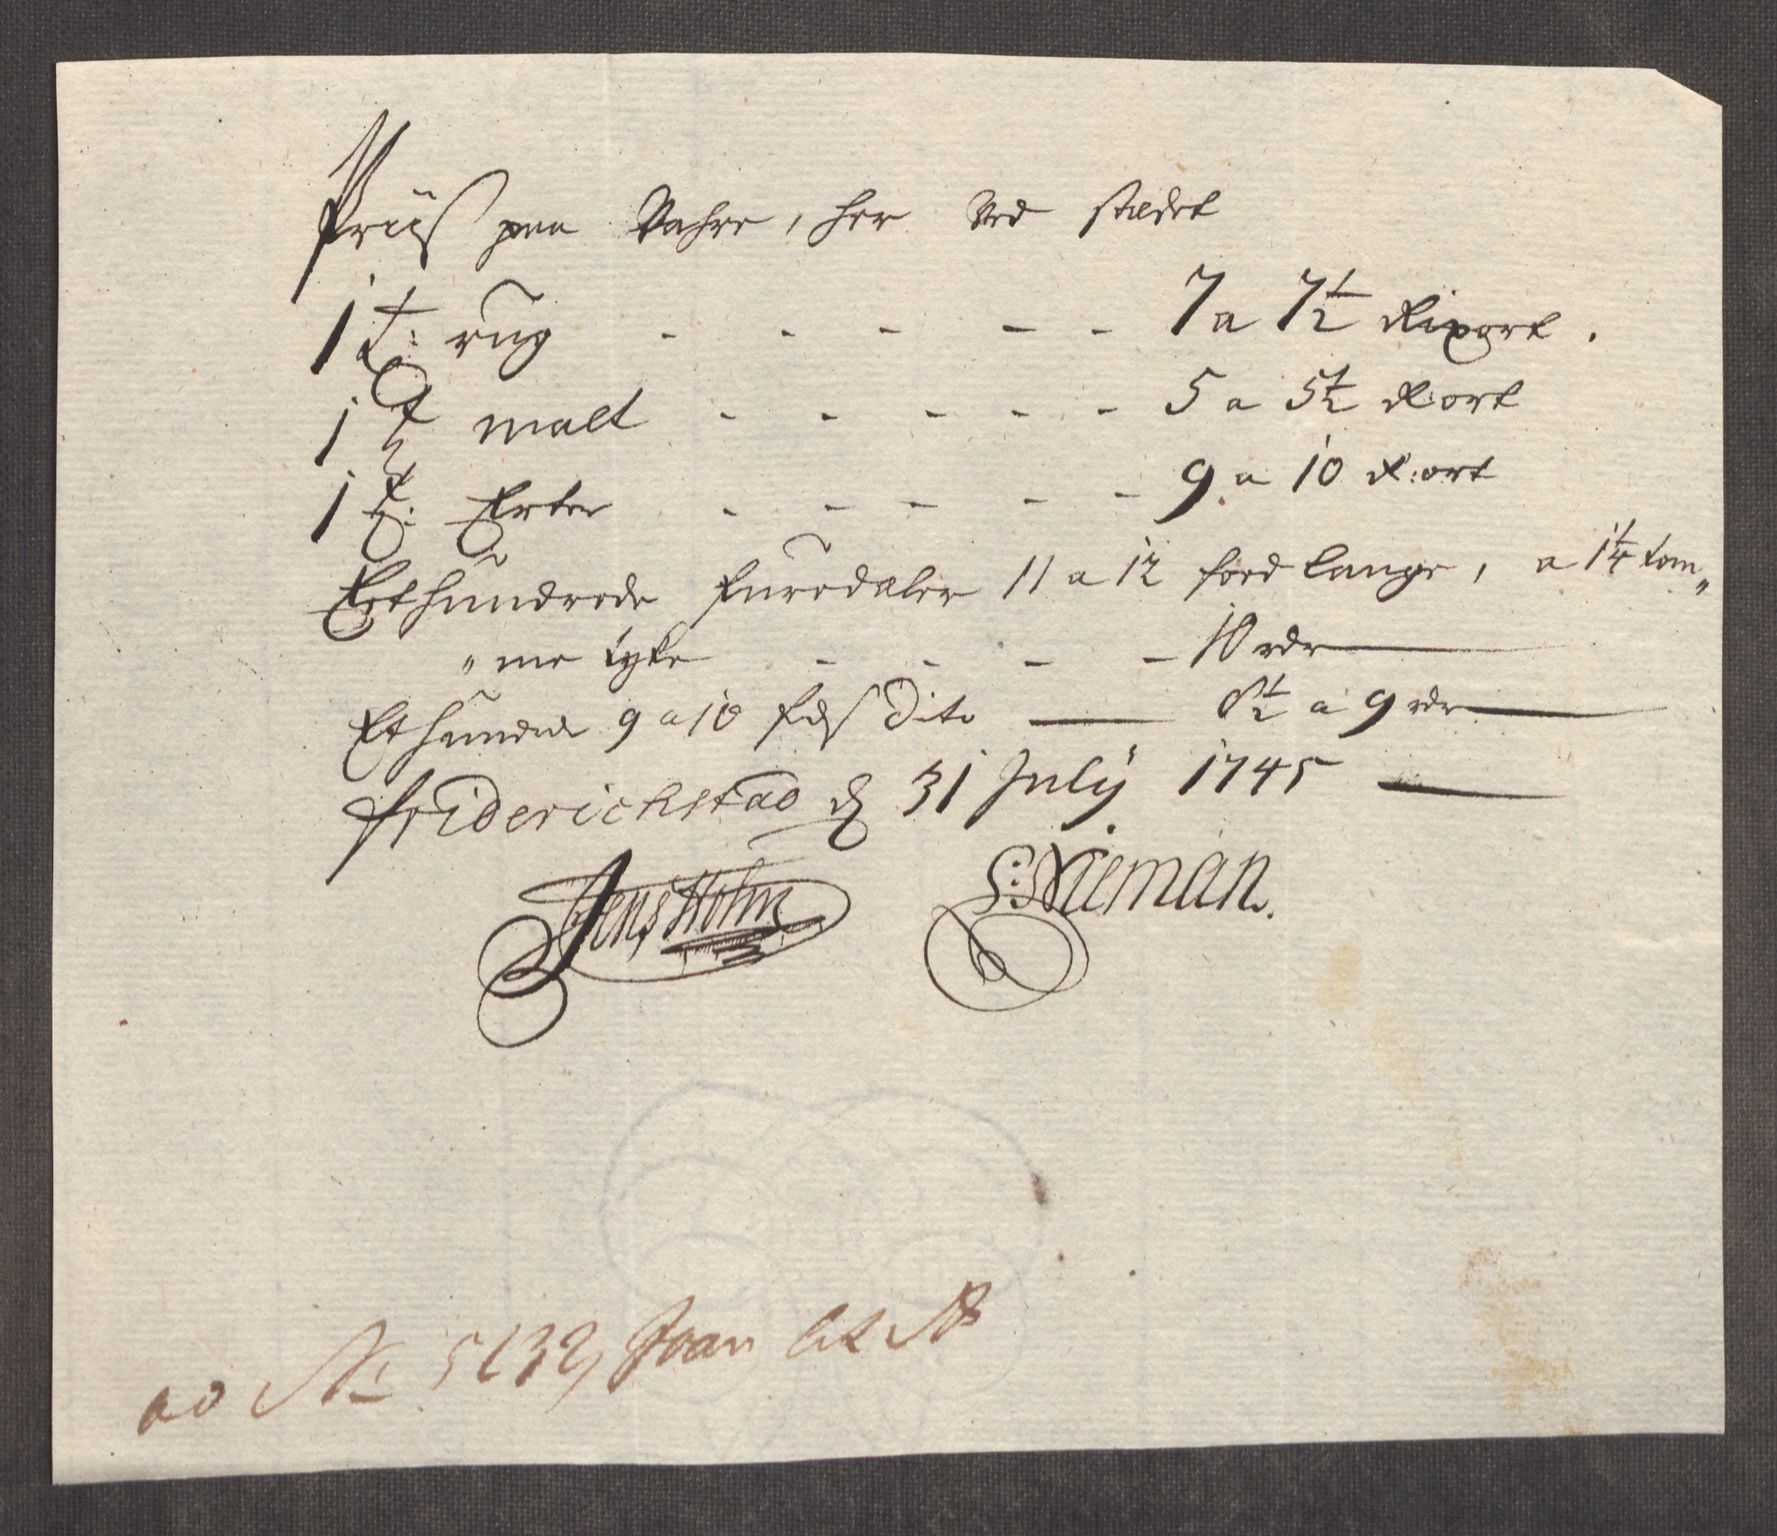 Priis paa Vahre, her ved stædet
1 t: rug - - - - - - 7 a 7½ Rixort.
1 t malt - - - - - 5 a 5½ R:ort
1 t: Erter - - - - - 9 a 10 R:ort
Et hundrede furedæler 11 a 12 foed lange, a 1¼ tom„
„me tyke - - - - 10 rdr
Et hundrede 9 a 10 fods Dito — 8½ a 9 rdr
Friderichstad d 31 July 1745
Jens Holm S: Nieman.
ad No 5132, Joan Lit